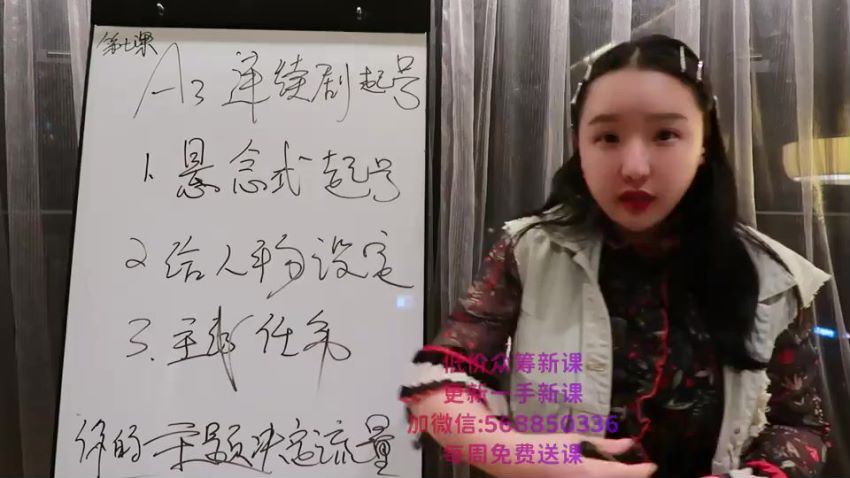 第七课
A3 连续剧起号
1. 悬念式起号
2 给人物设定
3. 主线任务
你的 题决定流量
低价众筹新课
更新一手新课
加微信:568850336
每周免费送课